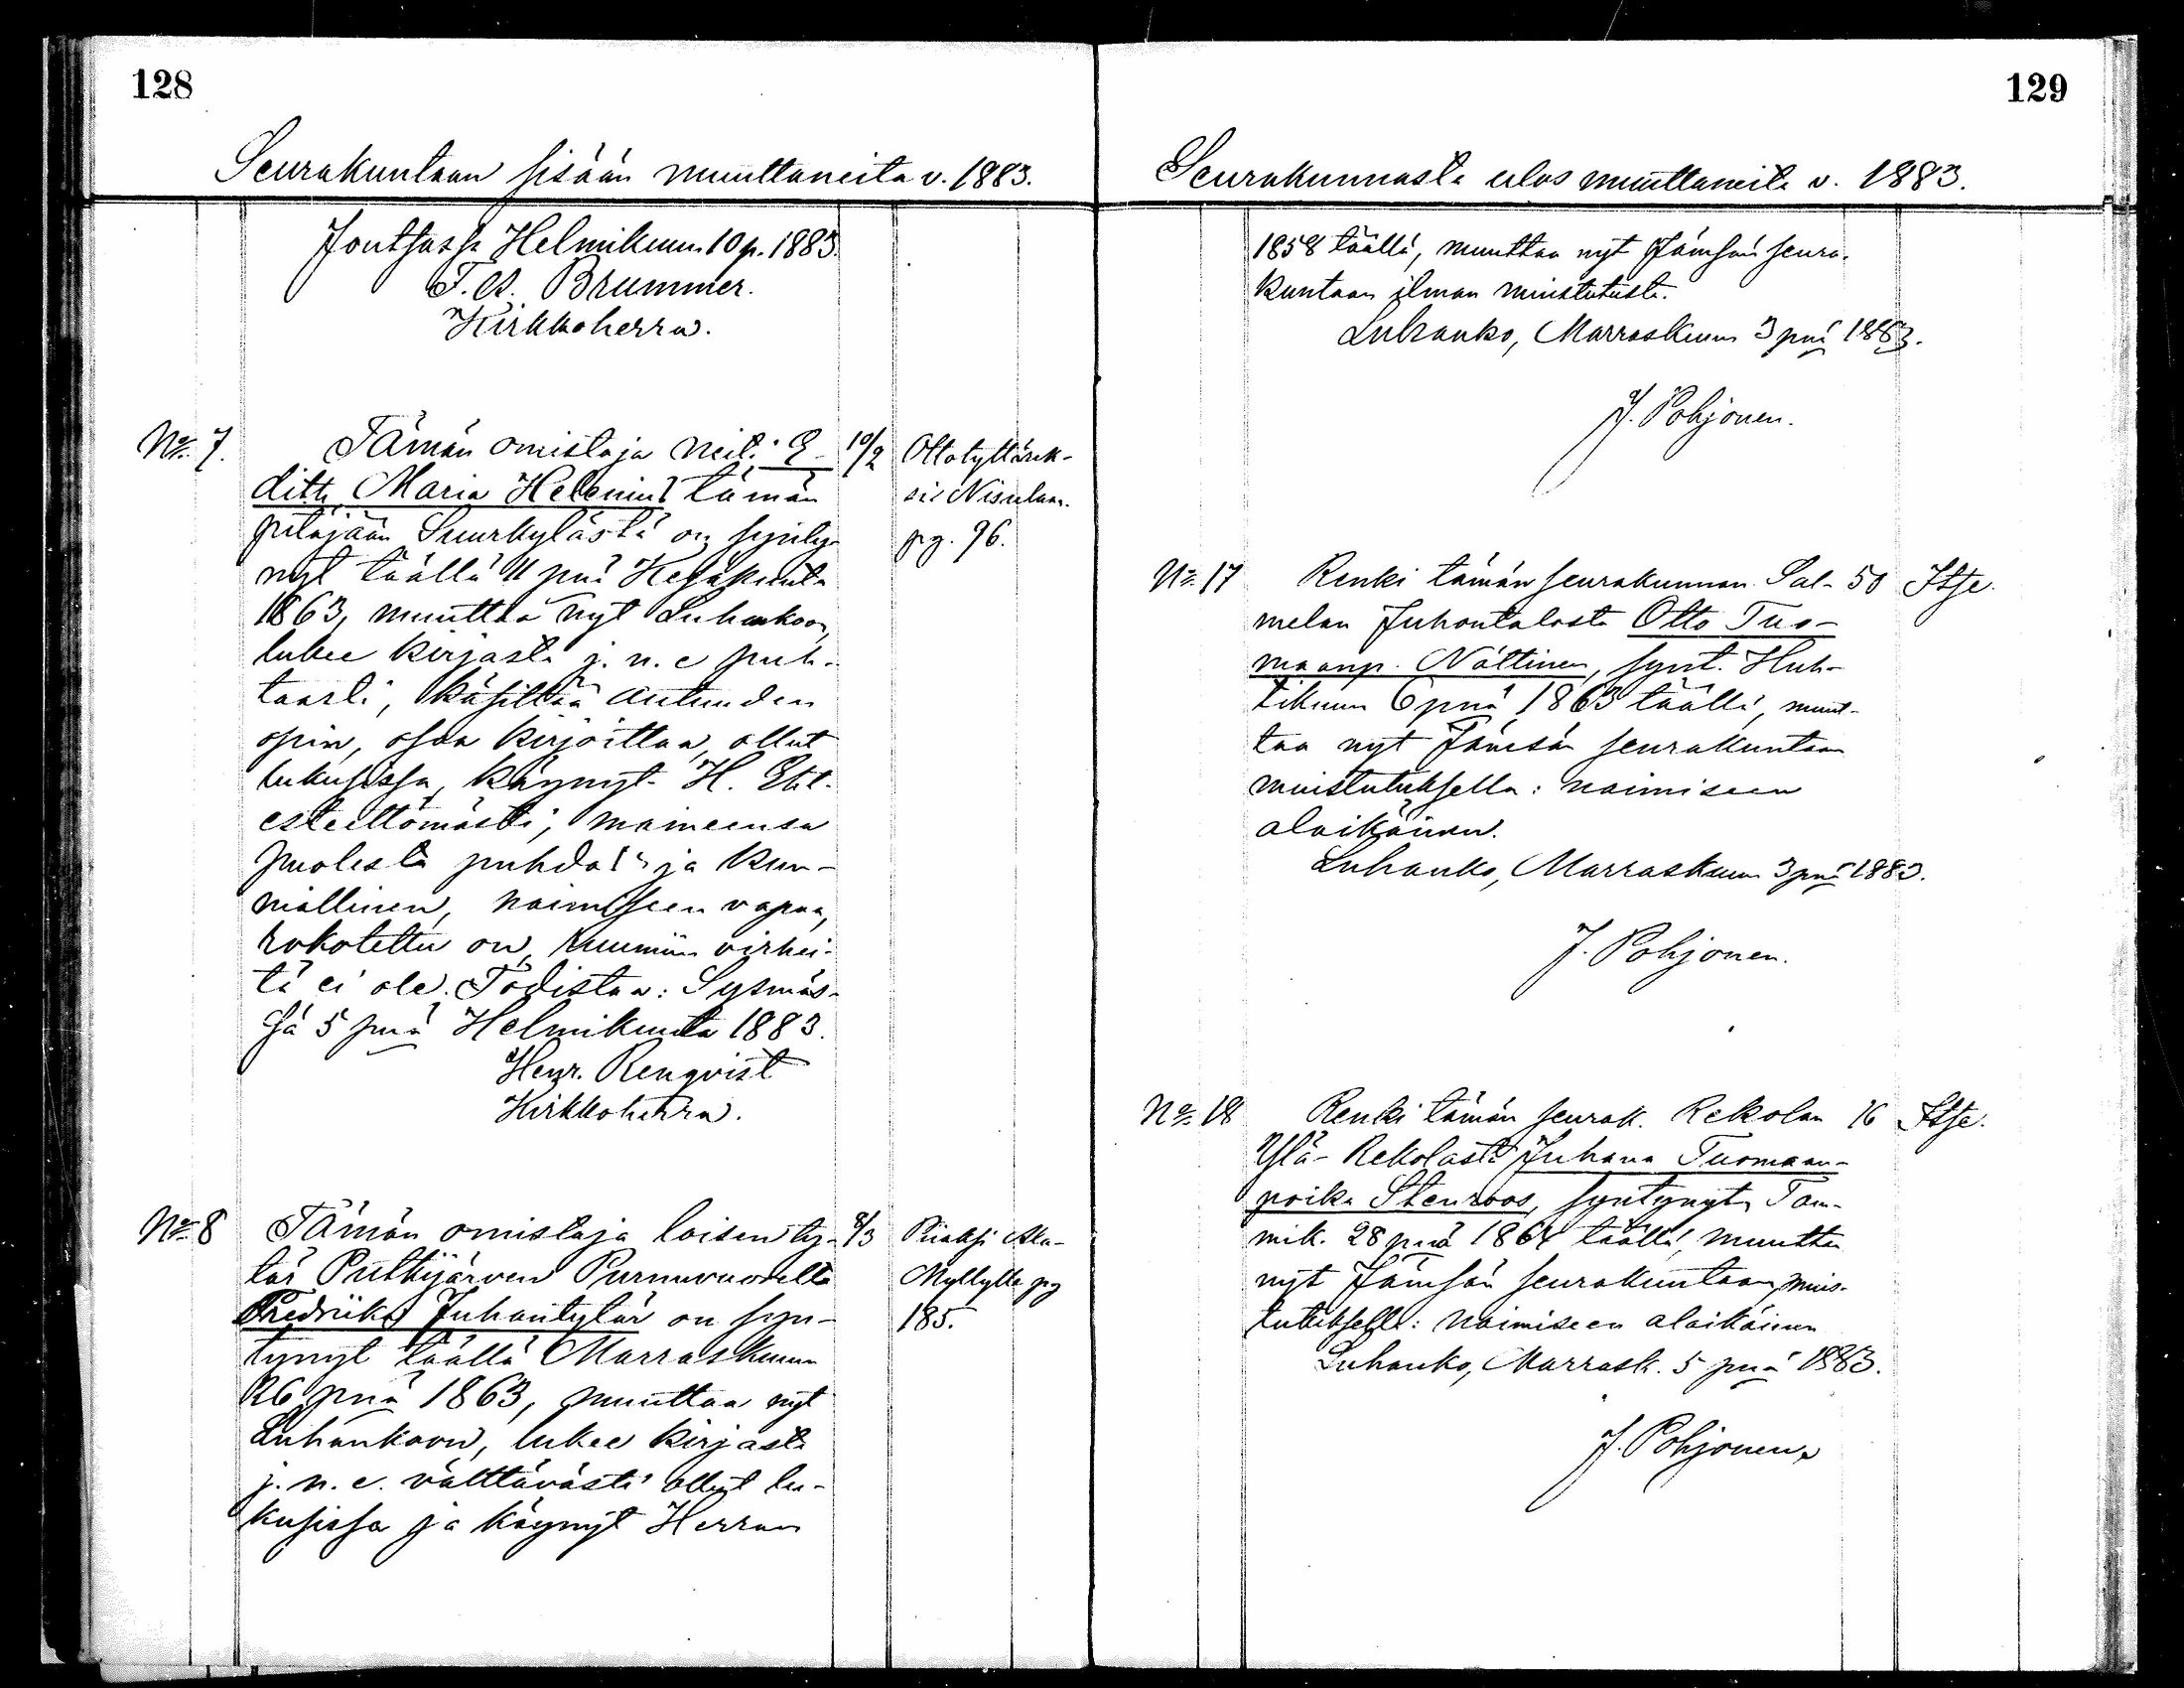 128
Seurakuntaan sisään muuttaneita v. 1883.
Joutsassa Helmikuun 10 p. 1883.
F. A. Brummer.
Kirkkoherra.
No 7. Tämän omistaja neiti E- 10/2 Ottotyttärek-
ditt Maria Helenius tämän sie Nisulaan.
pitäjään Suurkylästä on synty- pg. 96.
nyt täällä 11 pnä Kesäkuuta
1863, muuttaa nyt Luhankoon,
lukee kirjasta j. n. e puh-
taasti, käsittää autuuden
opin, osaa kirjoittaa, ollut
lukusissa, käynyt H. Eht.
esteettömästi, maineensa
puolesta puhdas ja kun-
niallinen, naimiseen vapaa,
rokotettu on, ruumiin virhei-
tä ei ole. Todistaa: Sysmäs-
sä 5 pnä Helmikuuta 1883.
Henr. Renqvist
Kirkkoherra.
No 8 Tämän omistaja loisen ty- 8/3 Piiaksi Ala-
tär Putkijärven Purnuvuorelta Myllylle pg
Fredriika Juhontytär on syn- 185.
tynyt täällä Marraskuun
26 pnä 1863, muuttaa nyt
Luhankoon, lukee kirjasta
j. n. e. välttävästi ollut lu-
kusissa ja käynyt Herran
129
Seurakunnasta ulos muuttaneita v. 1883.
1858 täällä, muuttaa nyt Jämsän seura-
kuntaan ilman muistutusta.
Luhanko, Marraskuun 3 pnä 1883.
J. Pohjonen.
No 17 Renki tämän seurakunnan Sal- 50 Itse.
melan Juhontalosta Otto Tuo-
maanp. Nättinen, synt. Huh-
tikuun 6 pnä 1863 täällä, muut-
taa nyt Jämsän seurakuntaan
muistutuksella: naimiseen
alaikäinen.
Luhanko, Marraskuun 3 pnä 1883.
J. Pohjonen.
No 18 Renki tämän seurak. Rekolan 16 Itse.
Ylä-Rekolasta Juhana Tuomaan-
poika Stenroos, syntynyt Tam-
mik. 28 pnä 1864 täällä, muuttaa
nyt Jämsän seurakuntaan, muis-
tutuksella: naimiseen alaikäinen
Luhanko, Marrask. 5 pnä 1883.
J. Pohjonen